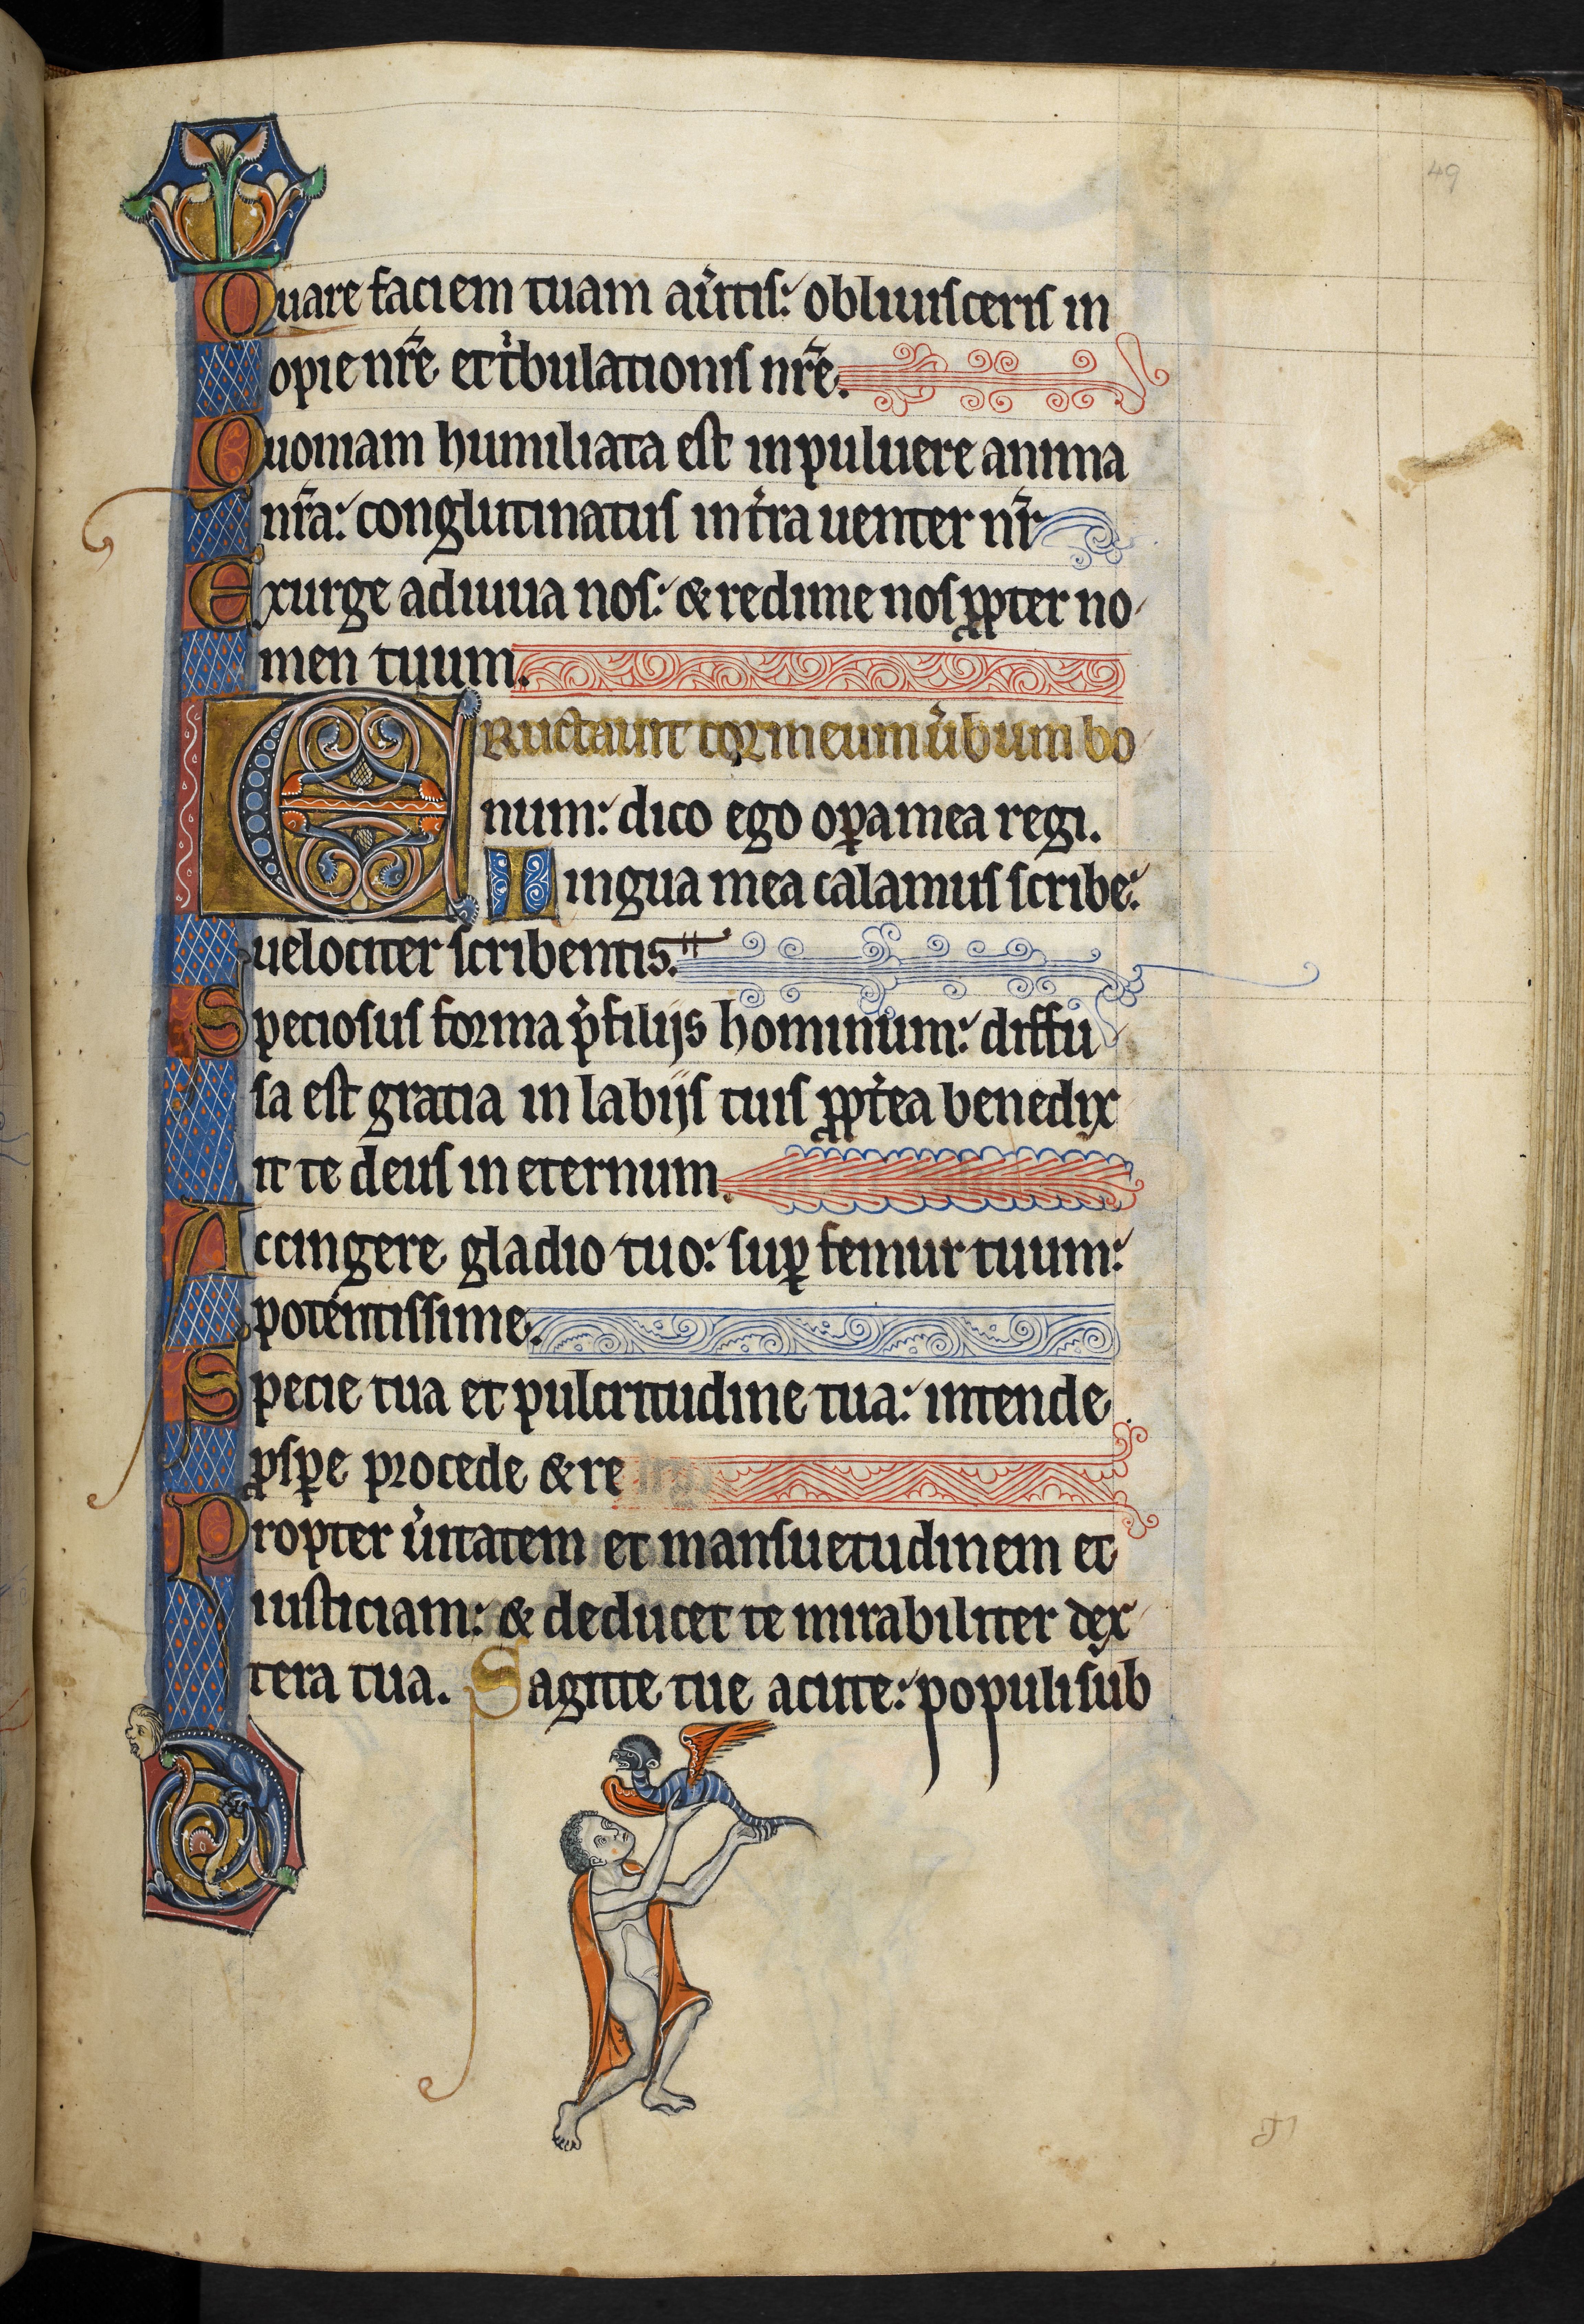 49
Quare faciem tuam au̾tis: obliuisceris in
opie nr̃e et t̾bulationis nr̃e.
Quoniam humiliata est in puluere anima
nr̃a: conglutinatus in t̾ra uenter nr̃
Exurge adiuua nos: & redime nos ꝓpter no
men tuum.
Eructauit cor meum u̾bum bo
num: dico ego oꝑa mea regi.
Lingua mea calamus scribe:
uelociter scribentis.
Speciosus forma p̾ filijs hominum: diffu
sa est gratia in labijs tuis ꝓpt̾ea benedix
it te deus in eternum.
Accingere gladio tuo: suꝑ femur tuum:
potentissime.
Specie tua et pulcritudine tua: intende
ꝓsꝑe procede & re
Propter u̾itatem et mansuetudinem et
iusticiam: & deducet te mirabiliter dex
tera tua. Sagitte tue acute: populi sub